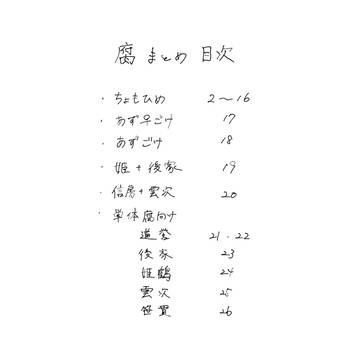 腐 まとめ 目次
・ちょもひめ 2〜16
・あず早ごけ 17
・あずごけ 18
・姫+後家 19
・信房+雲次 20
・単体腐向け
道誉 21.22
後家 23
姫鶴 24
雲次 25
笹貫 26